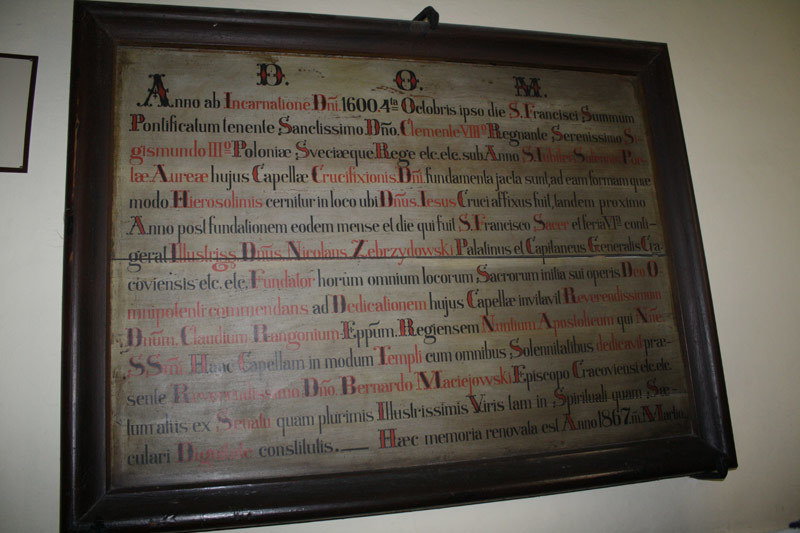 D. O. M.
Anno ab Incarnatione Dñi. 1600. 4ta Octobris ipso die S. Francisci Summum
Pontificatum tenente Sanctissimo Dño. Clemente VIIIº Regnante Serenissimo Si-
gismundo IIIº Poloniæ Sveciæque Rege etc. etc. sub Anno S.
læ Aureæ hujus Capellæ Crucifixionis Dñi fundamenta jacta sunt, ad eam formam quæ
modo Hierosolimis cernitur in loco ubi Dñus Iesus Cruci affixus fuit, tandem proximo
Anno post fundationem eodem mense et die qui fuit S. Francisco Sacer et feria VIta conti-
gerat Illustriss Dnus. Nicolaus Zebrzydowski Palatinus et Capitaneus Generalis Cra-
coviensis etc. etc. Fundator horum omnium locorum Sacrorum initia sui operis Deo O
mnipotenti commendans ad Dedicationem hujus Capellæ invitavit Reverendissimum
Dnum. Claudium Rangonium Eppum. Regiensem Nuntium Apostolicum qui
SSmi Hanc Capellam in modum Templi cum omnibus Solennitatibus dedicavit præ-
sente Reverendissimo Dño. Bernardo Maciejowski Episcopo Cracoviensi etc. etc.
tum aliis ex Senatu quam plurimis Illustrissimis Viris tam in Spirituali quam Sæ-
culari constitutis. — Hæc memoria renovata est Anno 1867 m.